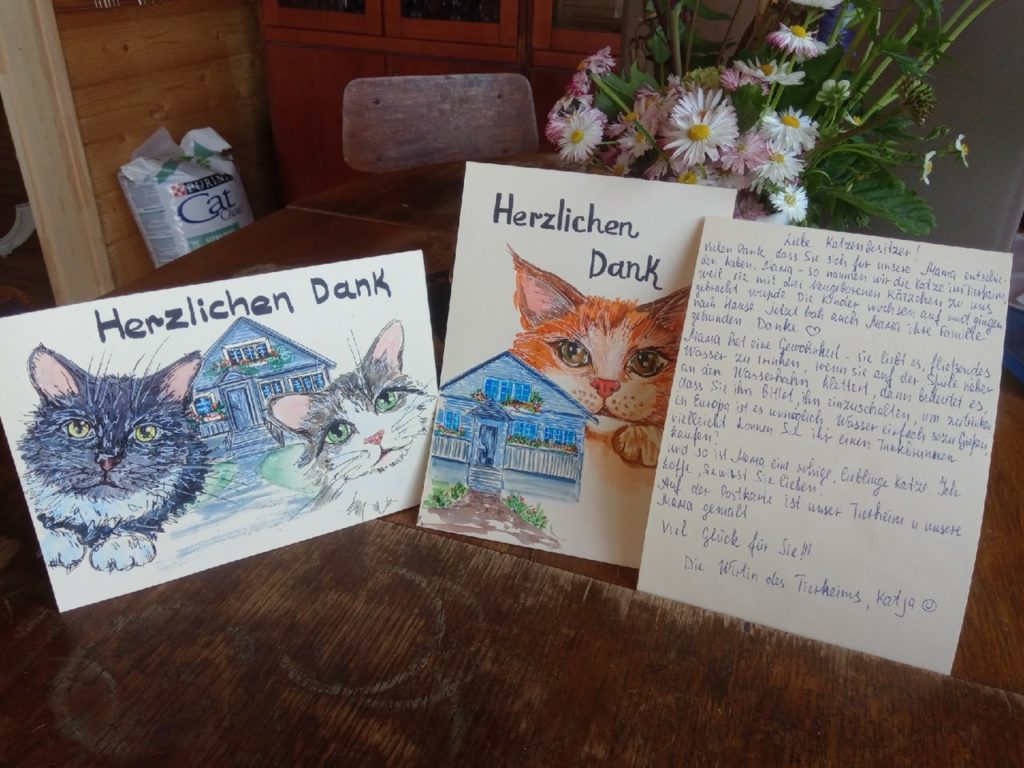 PURINA
Cat
Chow
Herzlichen Dank
Herzlichen
Dank
Liebe Katzenbesitzer!
Vielen Dank, dass Sie sich für unsere Mama entschie-
den haben. Mama - so nannten wir die Katze im Tierheim,
weil sie mit drei neugeborenen Kätzchen zu uns
gebracht wurde. Die Kinder wuchsen auf und gingen
nach Hause. Jetzt hah auch Mama ihre Familie
gefunden Danke ♡
Mama hat eine Gewohnheit - sie liebt es, fließendes
Wasser zu trinken, wenn sie auf der Spüle näher
an den Wasserhahn klettert, dann bedeutet es,
dass Sie ihn bittet, ihn einzuschalten um zu trinken
in Europa ist es unmöglich Wasser einfach so zu gießen,
vielleicht können Sie ihr einen Trinkbrunnen
kaufen?
und so ist Mama eine ruhige, Lieblings Katze. Ich
hoffe, Sie lieben.
Auf der Postkarte ist unser Tierheim u unsere
Mama gemalt
Viel Glück für Sie!!!
Die Wirtin des Tierheims, Katja ☺